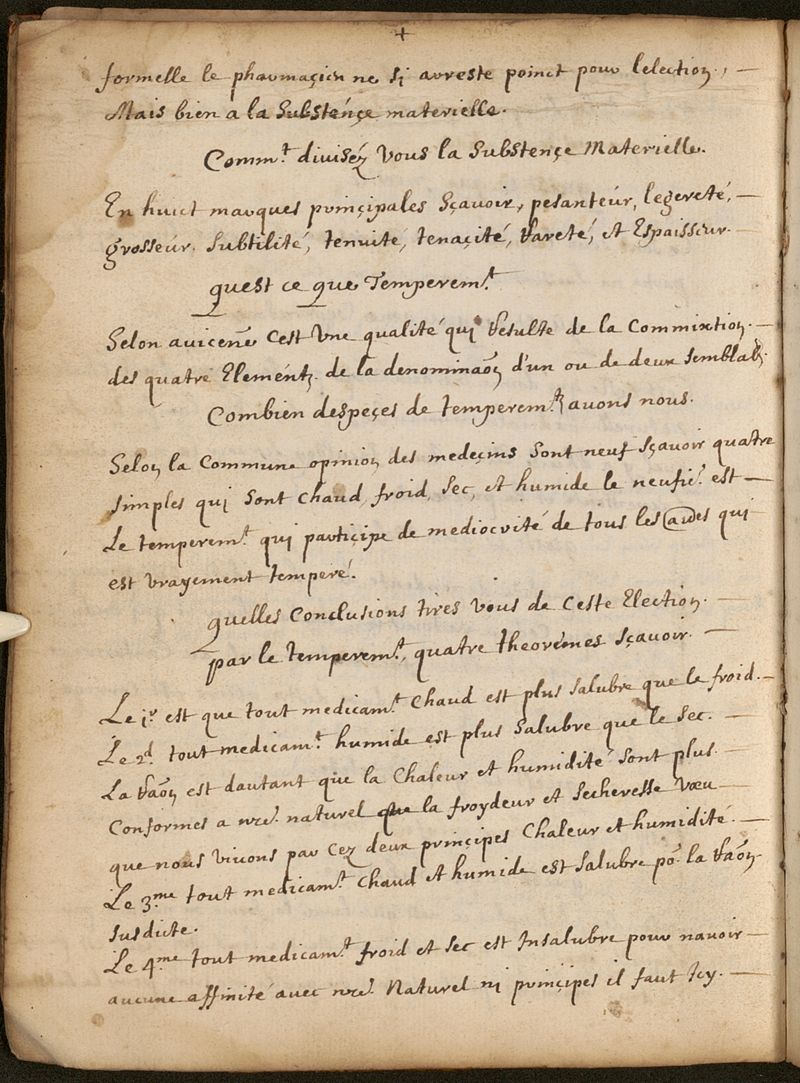 +
formelle le pharmaçien ne si arreste poinct pour lelection, —
Mais bien a la Substençe materielle.
Comm.t divisez Vous la Substençe Materielle.
En huict marques prinçipales Sçavoir, pesanteur, legereté, —
grosseur. Subtilité, tenuité, tenaçité, Rareté, et Espaisseur.
quest ce que Temperem.t
Selon avicene Cest Vne qualité qui Resulte de la Commixtion. —
des quatre Elements. de la denominaõn d'un ou de deux semblab.
Combien despeçes de temperem.ts avons nous.
Selon la Commune opinion des medeçins Sont neuf Sçavoir quatre
simples qui Sont Chaud, froid, Sec, et humide le neufie. est —
Le temperem.t qui partiçipe de mediocrité de tous les aues qui
est vrayement temperé.
quelles Conclusions tires Vous de Ceste Election. —
par le temperem.t, quatre theoremes Sçavoir. —
Le 1.r est que tout medicam.t Chaud est plus Salubre que le froid. —
Le 2.d tout medicam.t humide est plus Salubre que le Sec. —
La Raõn est dautant que la Chaleur et humidité Sont plus —
Conformes a nre. naturel que la froydeur et Secheresse Vœu —
que nous viuons par Cez deux prinçipes Chaleur et humidité. —
Le 3.me tout medicam.t Chaud et humide est Salubre po.r la Raõn
Susdicte.
Le 4.me tout medicam.t froid et sec est Insalubre pour nauoir —
aucune affinité avec nre. Naturel ni prinçipes il faut Icy. —